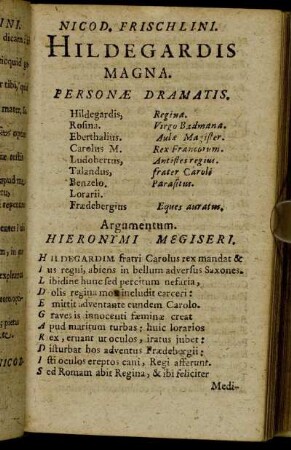 NICOD. FRISCHLINI.
HILDEGARDIS
MAGNA.
PERSONÆ DRAMATIS.
Hildegardis, Regina.
Rosina. Virgo Badmana.
Eberthalius. Aulæ Magister.
Carolus M. Rex Francorum.
Ludobertus, Antistes regius.
Talandus, frater Caroli
Benzelo. Parasitus.
Lorarii.
Frædebergius Eques auratus.
Argumentum.
HIERONIMI MEGISERI.
HILDEGARDIM fratri Carolus rex mandat &
Ius regni, abiens in bellum adversus Saxones.
Libidine hunc sed percitum nefaria,
Dolis regina mox includit carceri:
Emittit adventante eundem Carolo.
Graves is innocenti fæminæ creat
Apud maritum turbas; huic lorarios
Rex, eruant ut oculos, iratus jubet:
Disturbat hos adventus Frædebergii;
Isti oculos ereptos cani, Regi afferunt.
Sed Romam abit Regina, & ibi feliciter
Medi-
INI.
dicam:
mater,
NICOD.